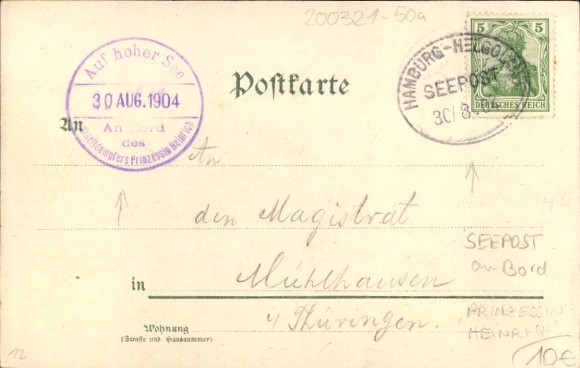 200321-50a
Auf hoher See
30 AUG. 1904
An Bord
des
Prinzessin Heinrich
Postkarte
HAMBURG-HELGOLAND
SEEPOST
30/8
5 5
DEUTSCHES REICH
An
An
den Magistrat
in Mühlhausen
i/Thüringen.
Wohnung
(Straße und Hausnummer)
SEEPOST
an Bord
PRINZESSIN
HEINRICH
12
10€